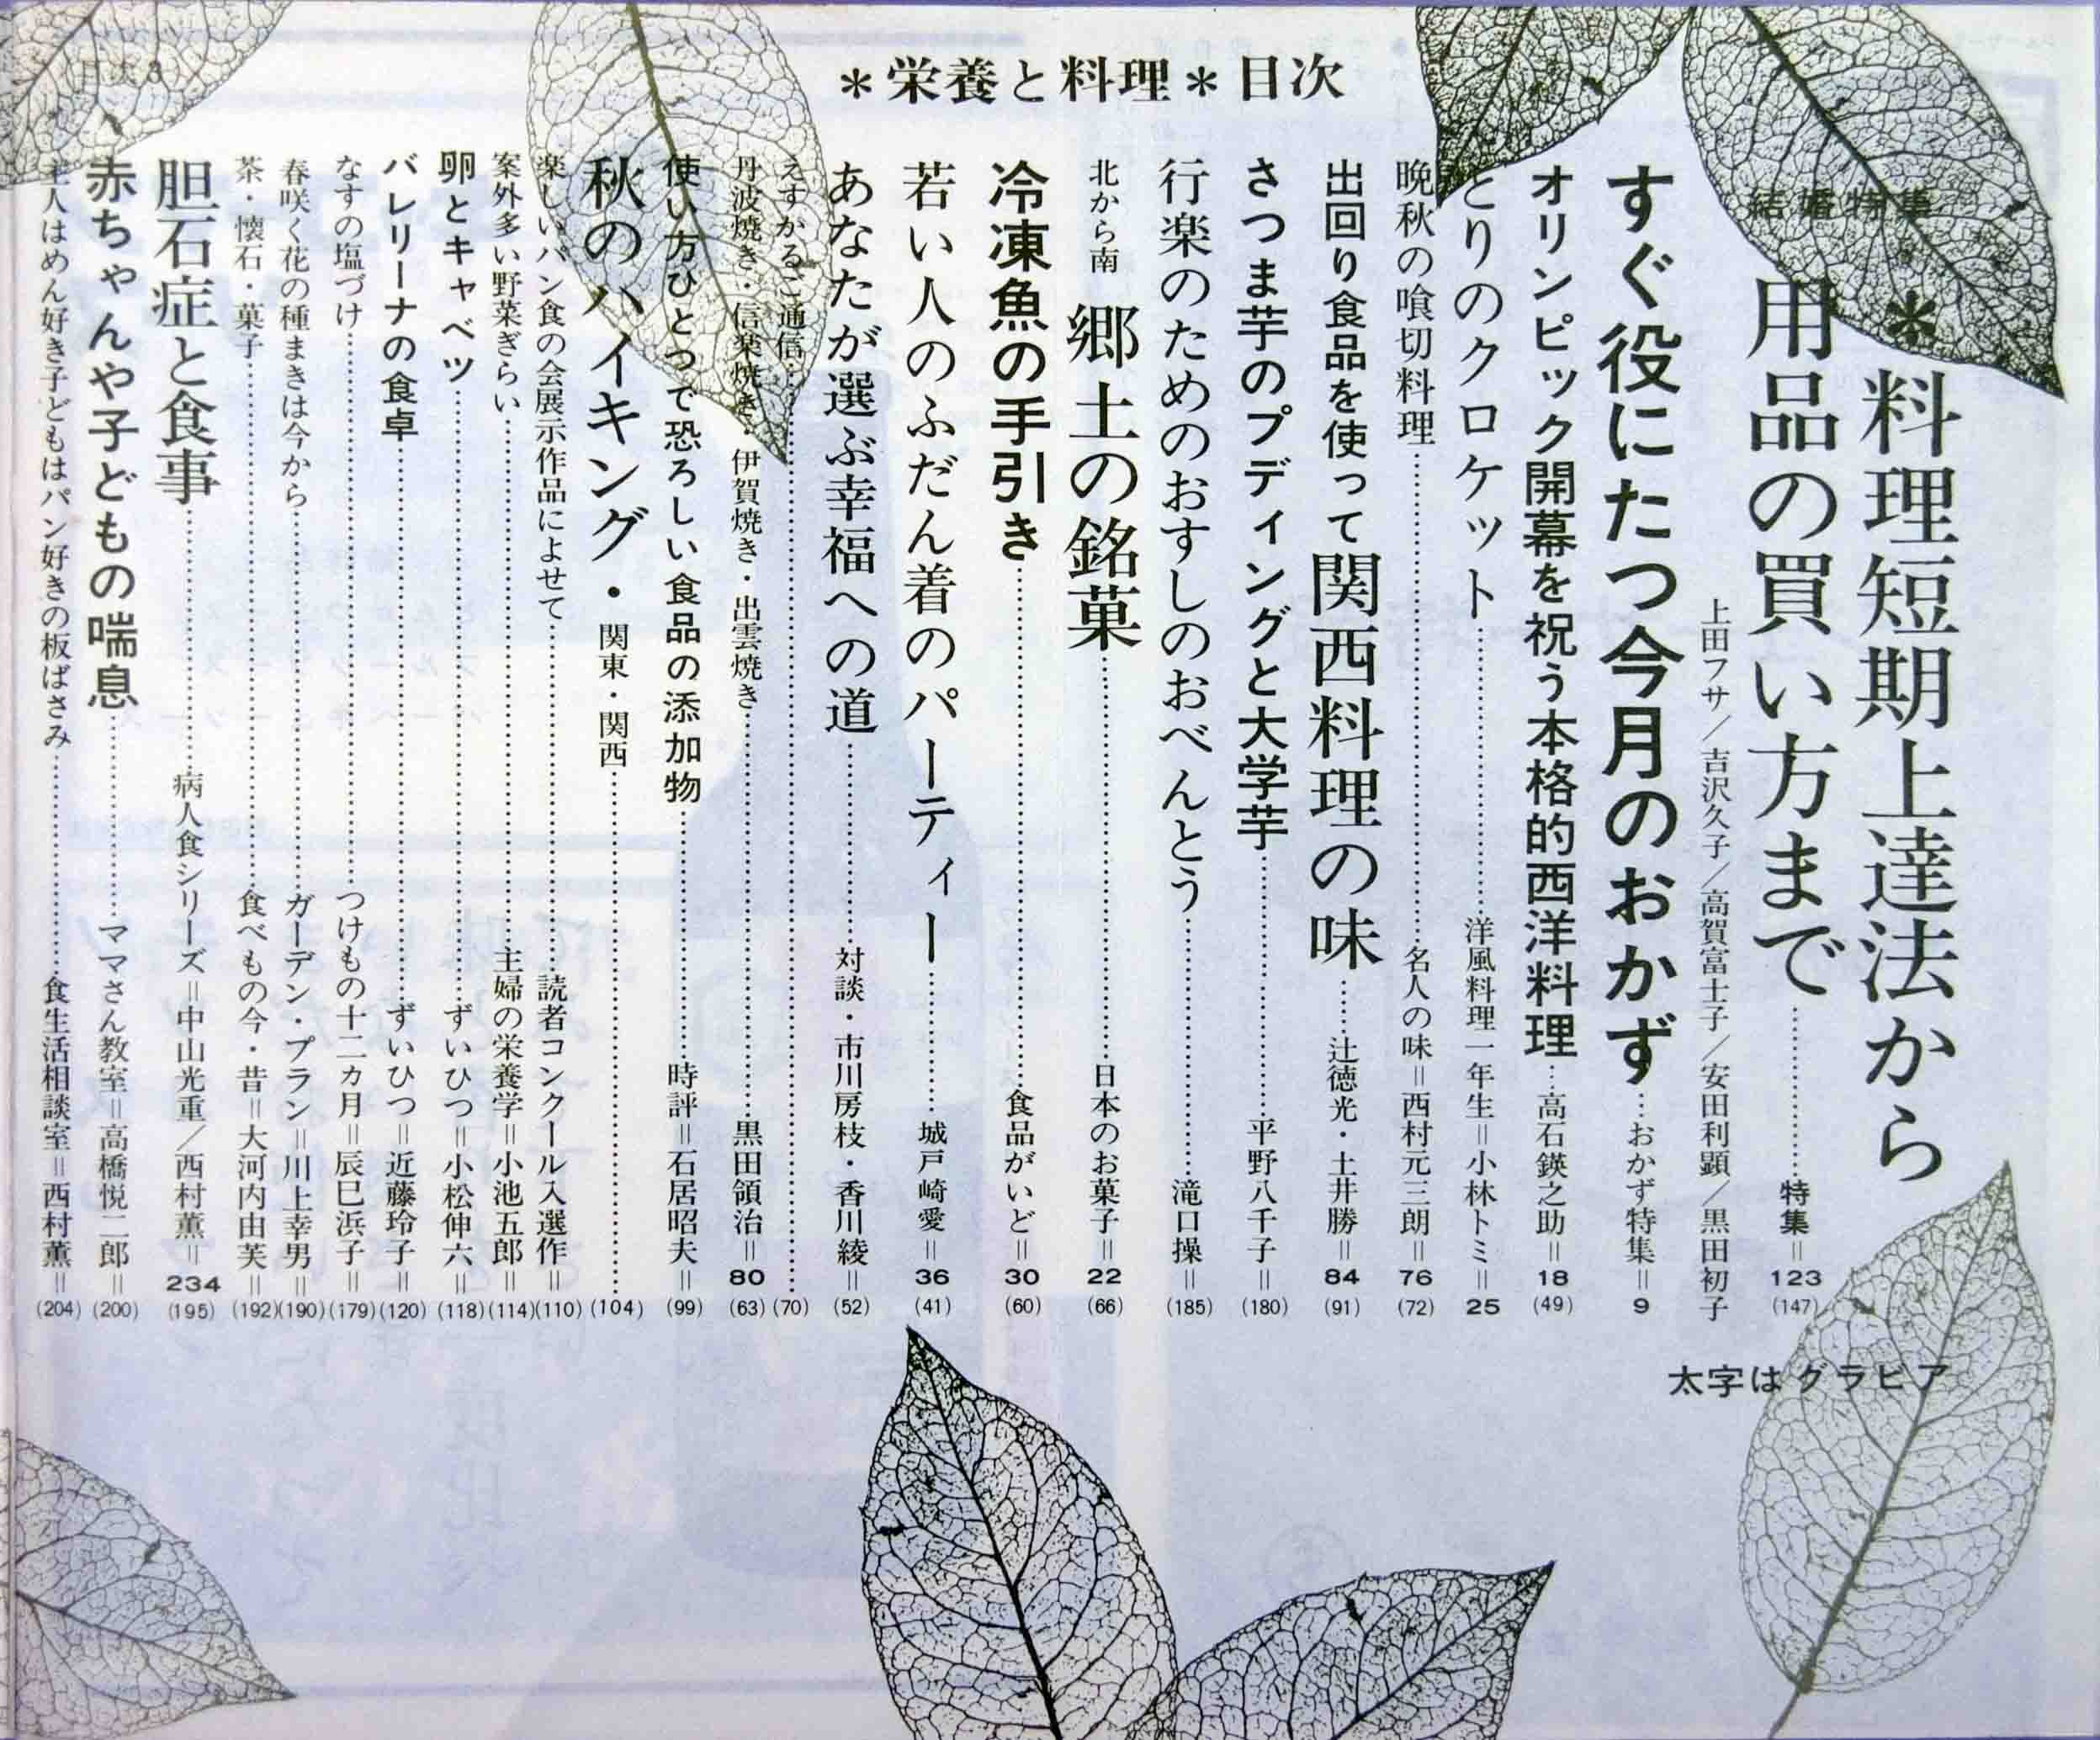 ＊栄養と料理＊目次
結婚特集
＊料理短期上達法から
用品の買い方まで…………特集＝123(147)
上田フサ／吉沢久子／高賀富士子／安田利顕／黒田初子
すぐ役にたつ今月のおかず…おかず特集＝9
オリンピック開幕を祝う本格的西洋料理…高石鍈之助＝18(49)
とりのクロケット…………洋風料理一年生＝小林トミ＝25
晩秋の喰切料理…………名人の味＝西村元三朗＝76(72)
出回り食品を使って関西料理の味……辻徳光・土井勝＝84(91)
さつま芋のプディングと大学芋…………平野八千子＝(180)
行楽のためのおすしのおべんとう…………滝口操＝(185)
北から南 郷土の銘菓…………日本のお菓子＝22(66)
冷凍魚の手引き…………食品がいど＝30(60)
若い人のふだん着のパーティー…………城戸崎愛＝36(41)
あなたが選ぶ幸福への道…………対談・市川房枝・香川綾＝(52)
えすがるご通信…………(70)
丹波焼き・信楽焼き・伊賀焼き・出雲焼き…………黒田領治＝80(63)
使い方ひとつで恐ろしい食品の添加物…………時評＝石居昭夫＝(99)
秋のハイキング・関東・関西…………(104)
楽しいパン食の会展示作品によせて…………読者コンクール入選作＝(110)
案外多い野菜ぎらい…………主婦の栄養学＝小池五郎＝(114)
卵とキャベツ…………ずいひつ＝小松伸六＝(118)
バレリーナの食卓…………ずいひつ＝近藤玲子＝(120)
なすの塩づけ…………つけもの十二ヵ月＝辰巳浜子＝(179)
春咲く花の種まきは今から…………ガーデン・プラン＝川上幸男＝(190)
茶・懐石・菓子…………食べもの今・昔＝大河内由芙＝(192)
胆石症と食事…………病人食シリーズ＝中山光重／西村薫＝234(195)
赤ちゃんや子どもの喘息…………ママさん教室＝高橋悦二郎＝(200)
主人はめん好き子どもはパン好きの板ばさみ…………食生活相談室＝西村薫＝(204)
太字はグラビア